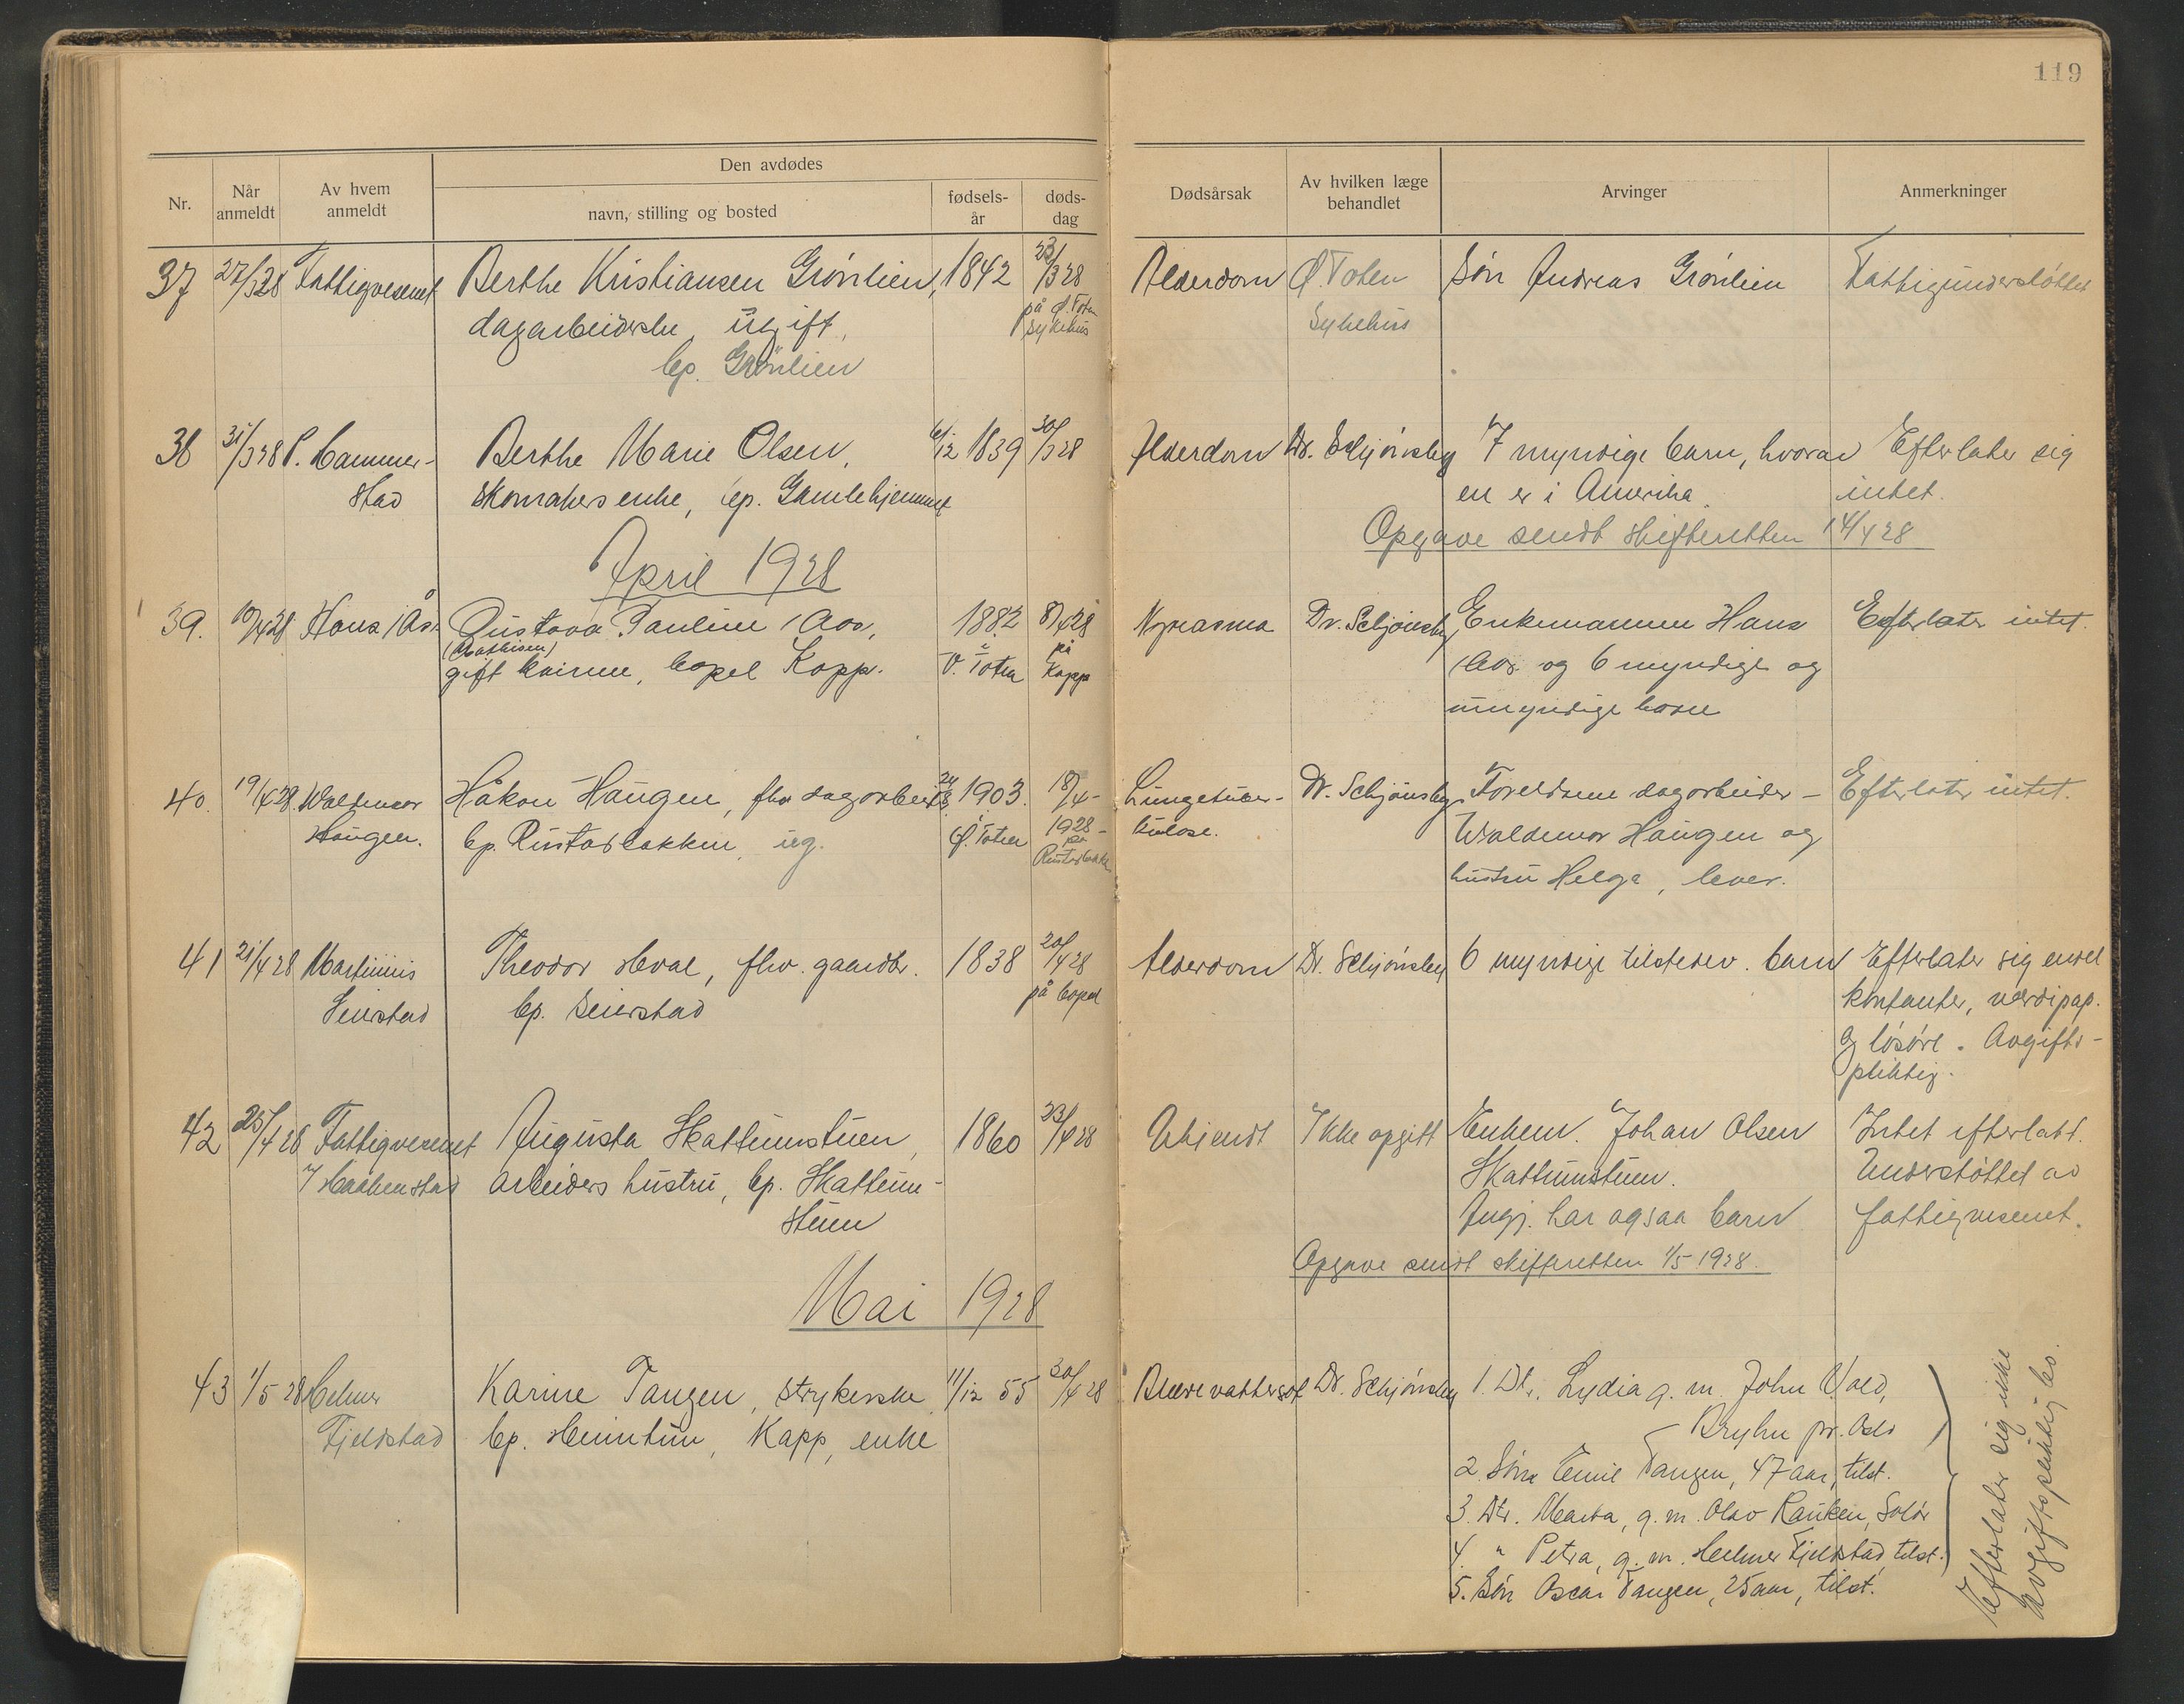 119
Nr.
Når anmeldt
Av hvem anmeldt
Den avdødes
navn, stilling og bosted
fødsels-år
døds-dag
Dødsårsak
Av hvilken læge behandlet
Arvinger
Anmerkninger
37 27/3 28 Fattigvesenet Berthe Kristiansen Grönlien, 1842 23/3 28 Alderdom Ø. Toten Sön Andreas Grönlien Fattigunderstöttet
dagarbeiderske, ugift, på Ø. Toten sykehus Sykehus
bp. Grönlien
38 31/3 28 P. Hammer- Berthe Marie Olsen, 6/12 1839 30/3 28 Alderdom Dr. Schjönsby 7 myndige barn, hvorav Efterlater sig
stad skomakers enke, bp. Gamlehjemmet en er i Amerika. intet.
Opgave sendt skifteretten 14/4 28
April 1928
39. 10/4 28 Hans Aas Gustava Pauline Aas, 1882 8/4 28 Dr. Schjönsby Enkemannen Hans Efterlater intet.
gift kvinne, bopel Kapp. i V. Toten på Kapp Aas og 6 myndige og
umyndige barn
40. 19/4 28 Waldemar Håkon Haugen, fhv. dagarbeid. 24/8 1903. 18/4- Lungetuber- Dr. Schjönsby Foreldrene dagarbeider- Efterlater intet.
Haugen. bp. Rustadbakken, ug. i Ø. Toten 1928- på Rustadbakken kulose. Waldemar Haugen og
hustru Helga, lever.
41 21/4 28 Martinius Theodor Hval, fhv. gaardbr. 1838 20/4 28 Alderdom Dr. Schjönsby 6 myndige tilstedev. barn Efterlater sig endel
Seierstad bp. Seierstad på bopel kontanter, verdipap.
og lösöre. Avgifts-
pliktig.
42 25/4 28 Fattigvesenet Augusta Skattumstuen, 1860 23/4 28 Ukjendt Ikke opgitt Enkem. Johan Olsen Intet efterlatt.
arbeiders hustru, bp. Skattum- Skattumstuen. Understöttet av
stuen Angj. har ogsaa barn fattigvesenet.
Opgave sendt skifteretten 1/5 1928.
Mai 1928
43 1/5 28 Helmer Karine Tangen, strykerske, 11/12 55 30/4 28 Dr. Schjönsby 1. Dtr. Lydia g. m. John
Fjeldstad bp. Heimtun, Kapp, enke Bryhn pr. Oslo
2. Sön Emil Tangen, 47 aar, tilst.
3. Dtr. Marta, g. m. Olav Rauken, Solör
4. " Petra, g. m. Helmer Fjeldstad tilst.
5. Sön Oscar Tangen, 25 aar, tilst.
Efterlater sig ikke
avgiftspliktig bo.